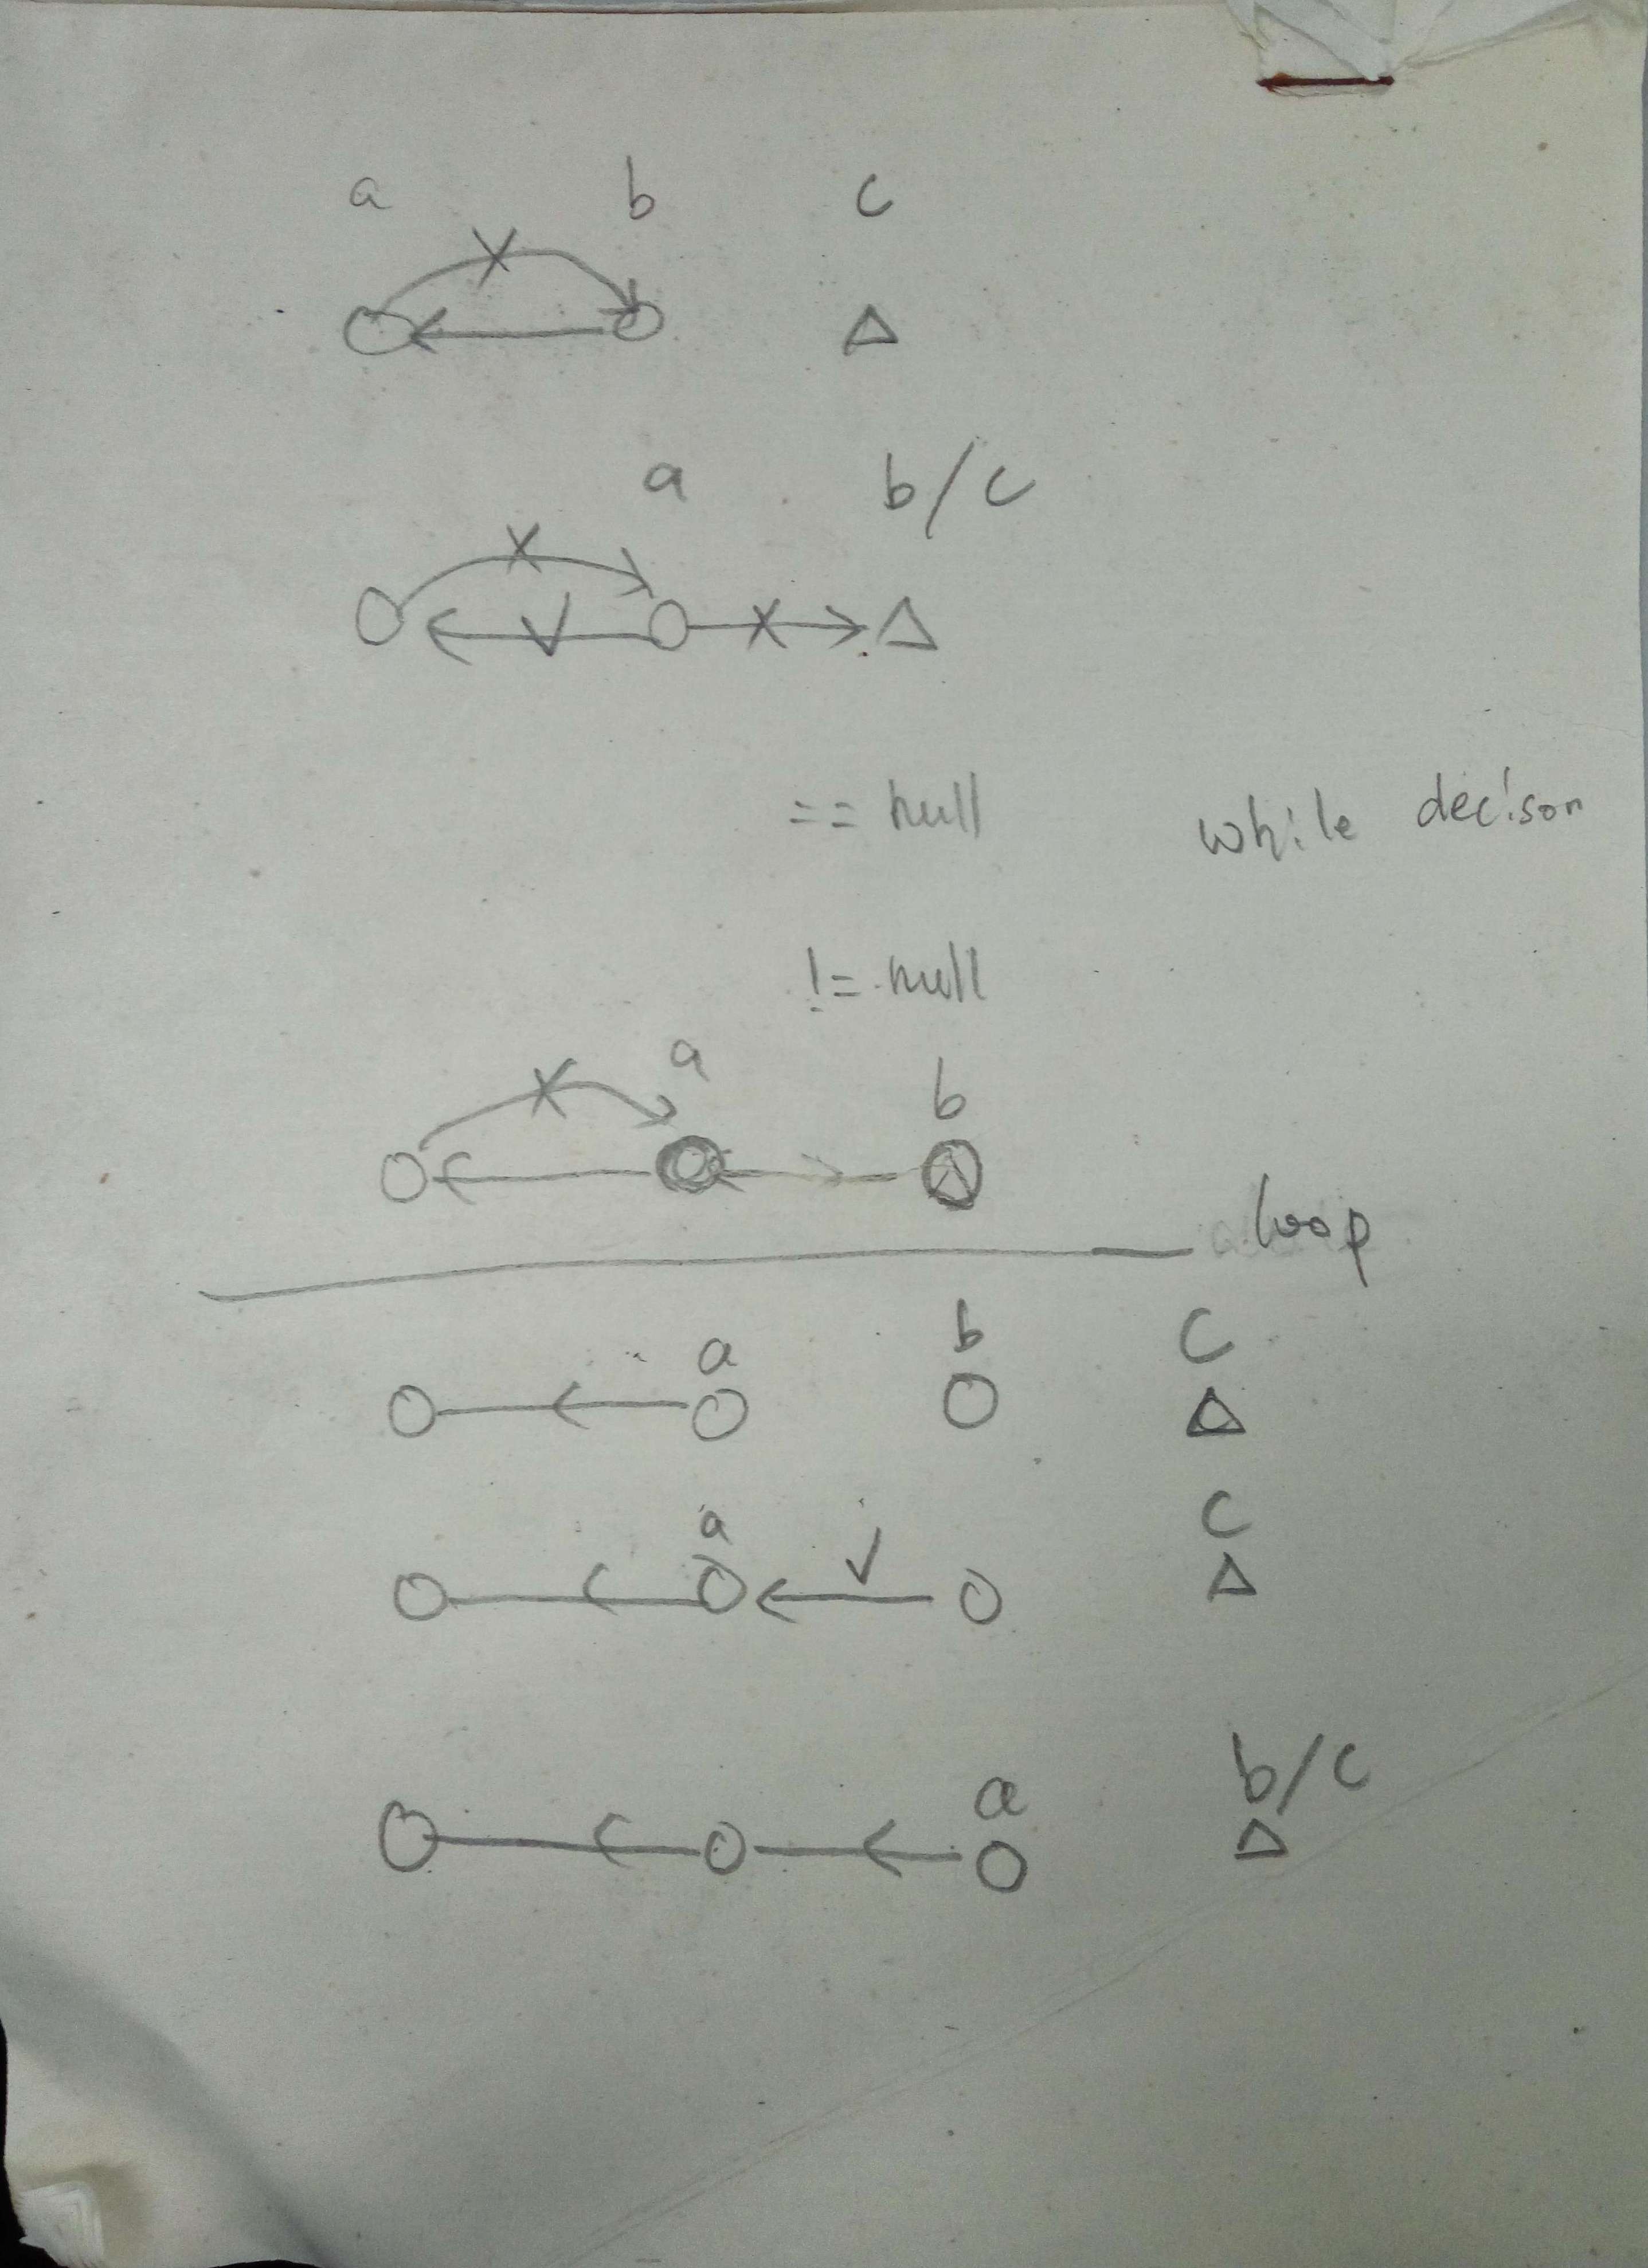 a b c
X
a b/c
X
X
== null while decison
!= null
a
b
X
loop
a b C
a C
a b/c